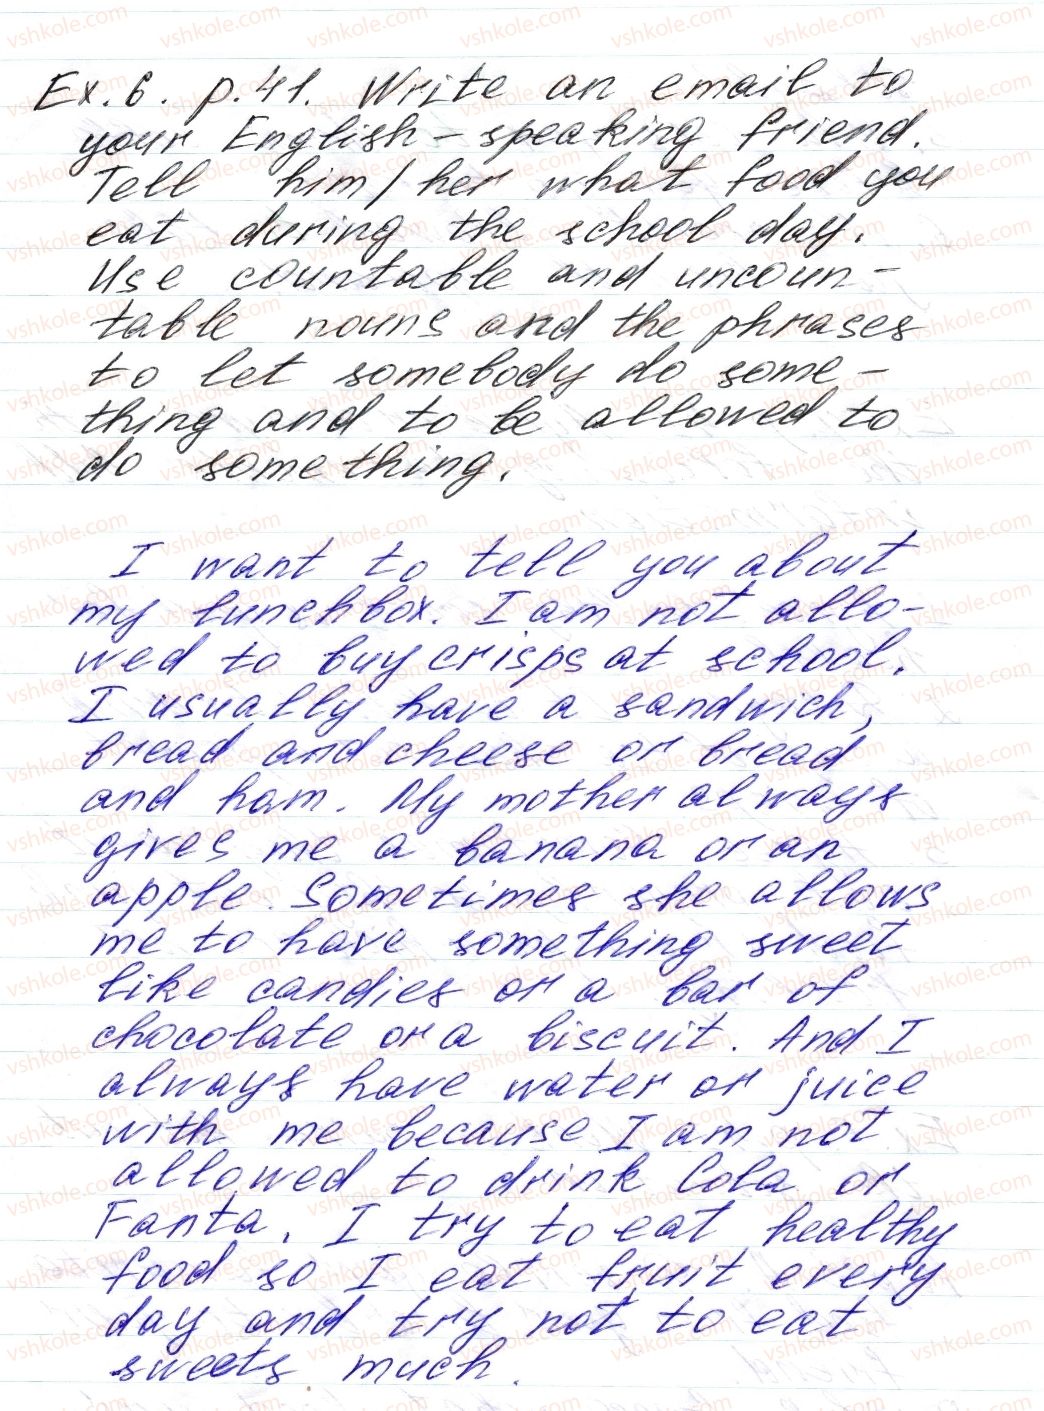 Ex. 6. p. 41. Write an email to
your English-speaking friend.
Tell him/her what food you
eat during the school day.
Use countable and uncoun-
table nouns and the phrases
to let somebody do some-
thing and to be allowed to
do something.
I want to tell you about
my lunchbox. I am not allo-
wed to buy crisps at school.
I usually have a sandwich,
bread and cheese or bread
and ham. My mother always
gives me a banana or an
apple. Sometimes she allows
me to have something sweet
like candies or a bar of
chocolate or a biscuit. And I
always have water or juice
with me because I am not
allowed to drink Cola or
Fanta. I try to eat healthy
food so I eat fruit every
day and try not to eat
sweets much.